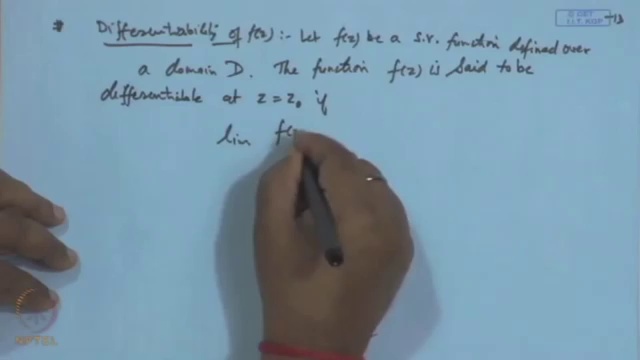 * Differentiability of f(z) :- Let f(z) be a s.v. function defined over
a domain D. The function f(z) is said to be
differentiable at z = z₀ if
lim f(z
© CET
I.I.T. KGP
NPTEL